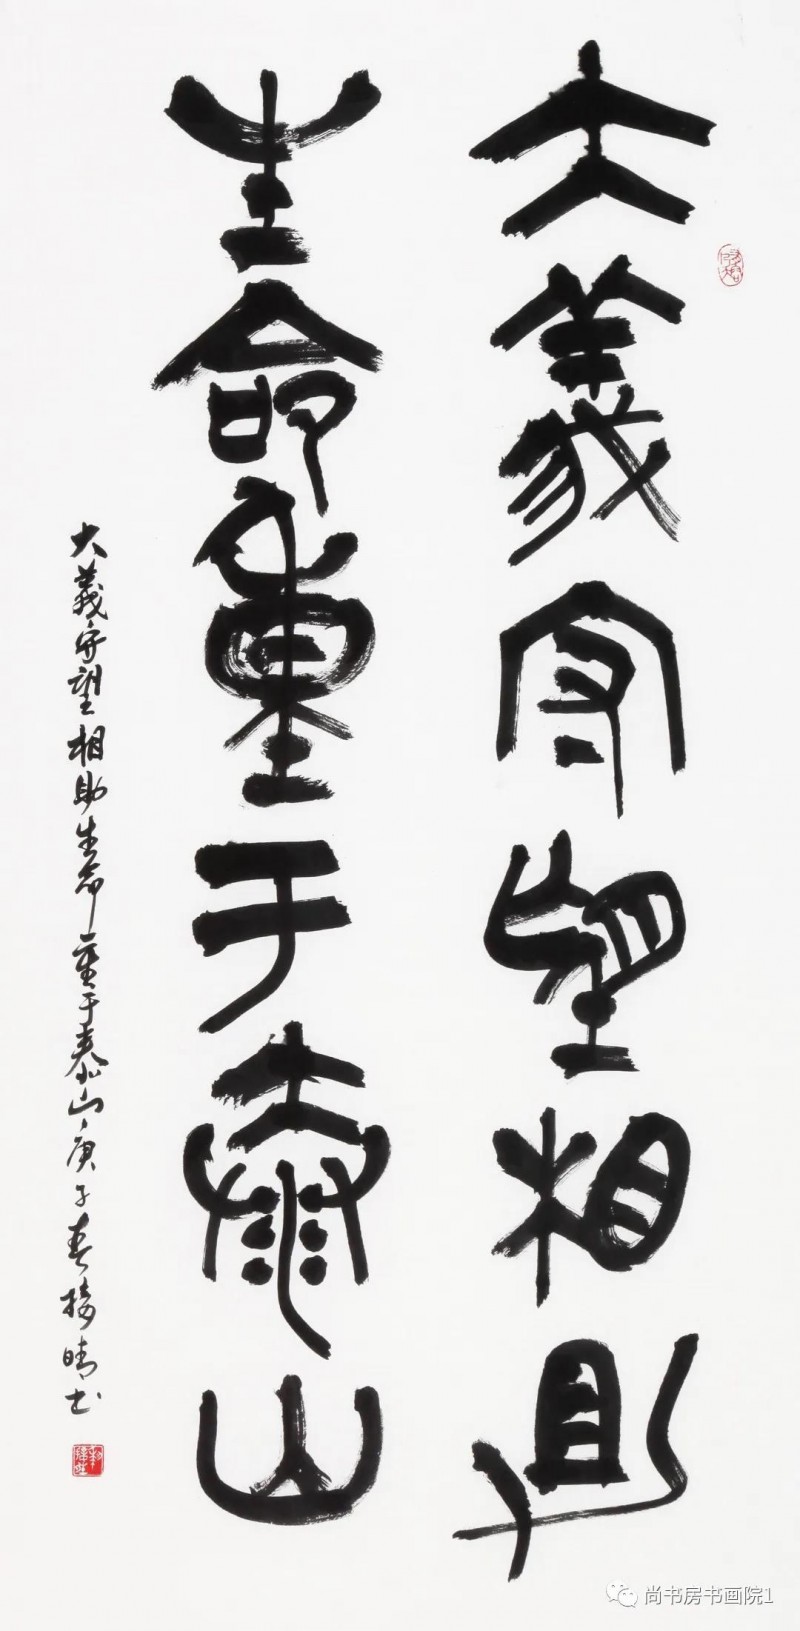 大義守望相助
生命重于泰山
大義守望相助生命重于泰山庚子春接晴书
尚书房书画院1